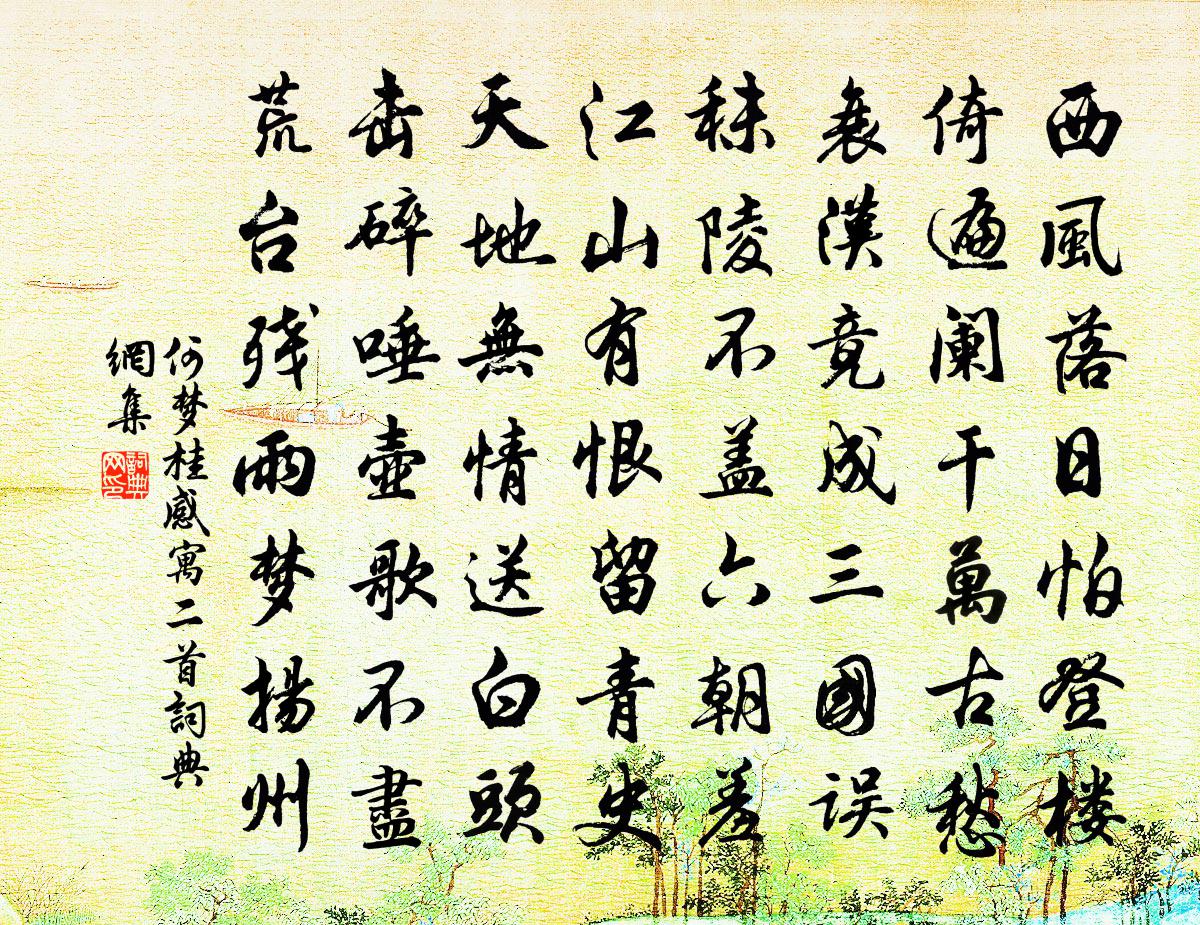 西風落日怕登楼
倚遍阑干萬古愁
衰漢竟成三國误
秣陵不盖六朝羞
江山有恨留青史
天地無情送白頭
击碎唾壶歌不盡
荒台残雨梦揚州
何梦桂感寓二首詞典
網集
詞典网印